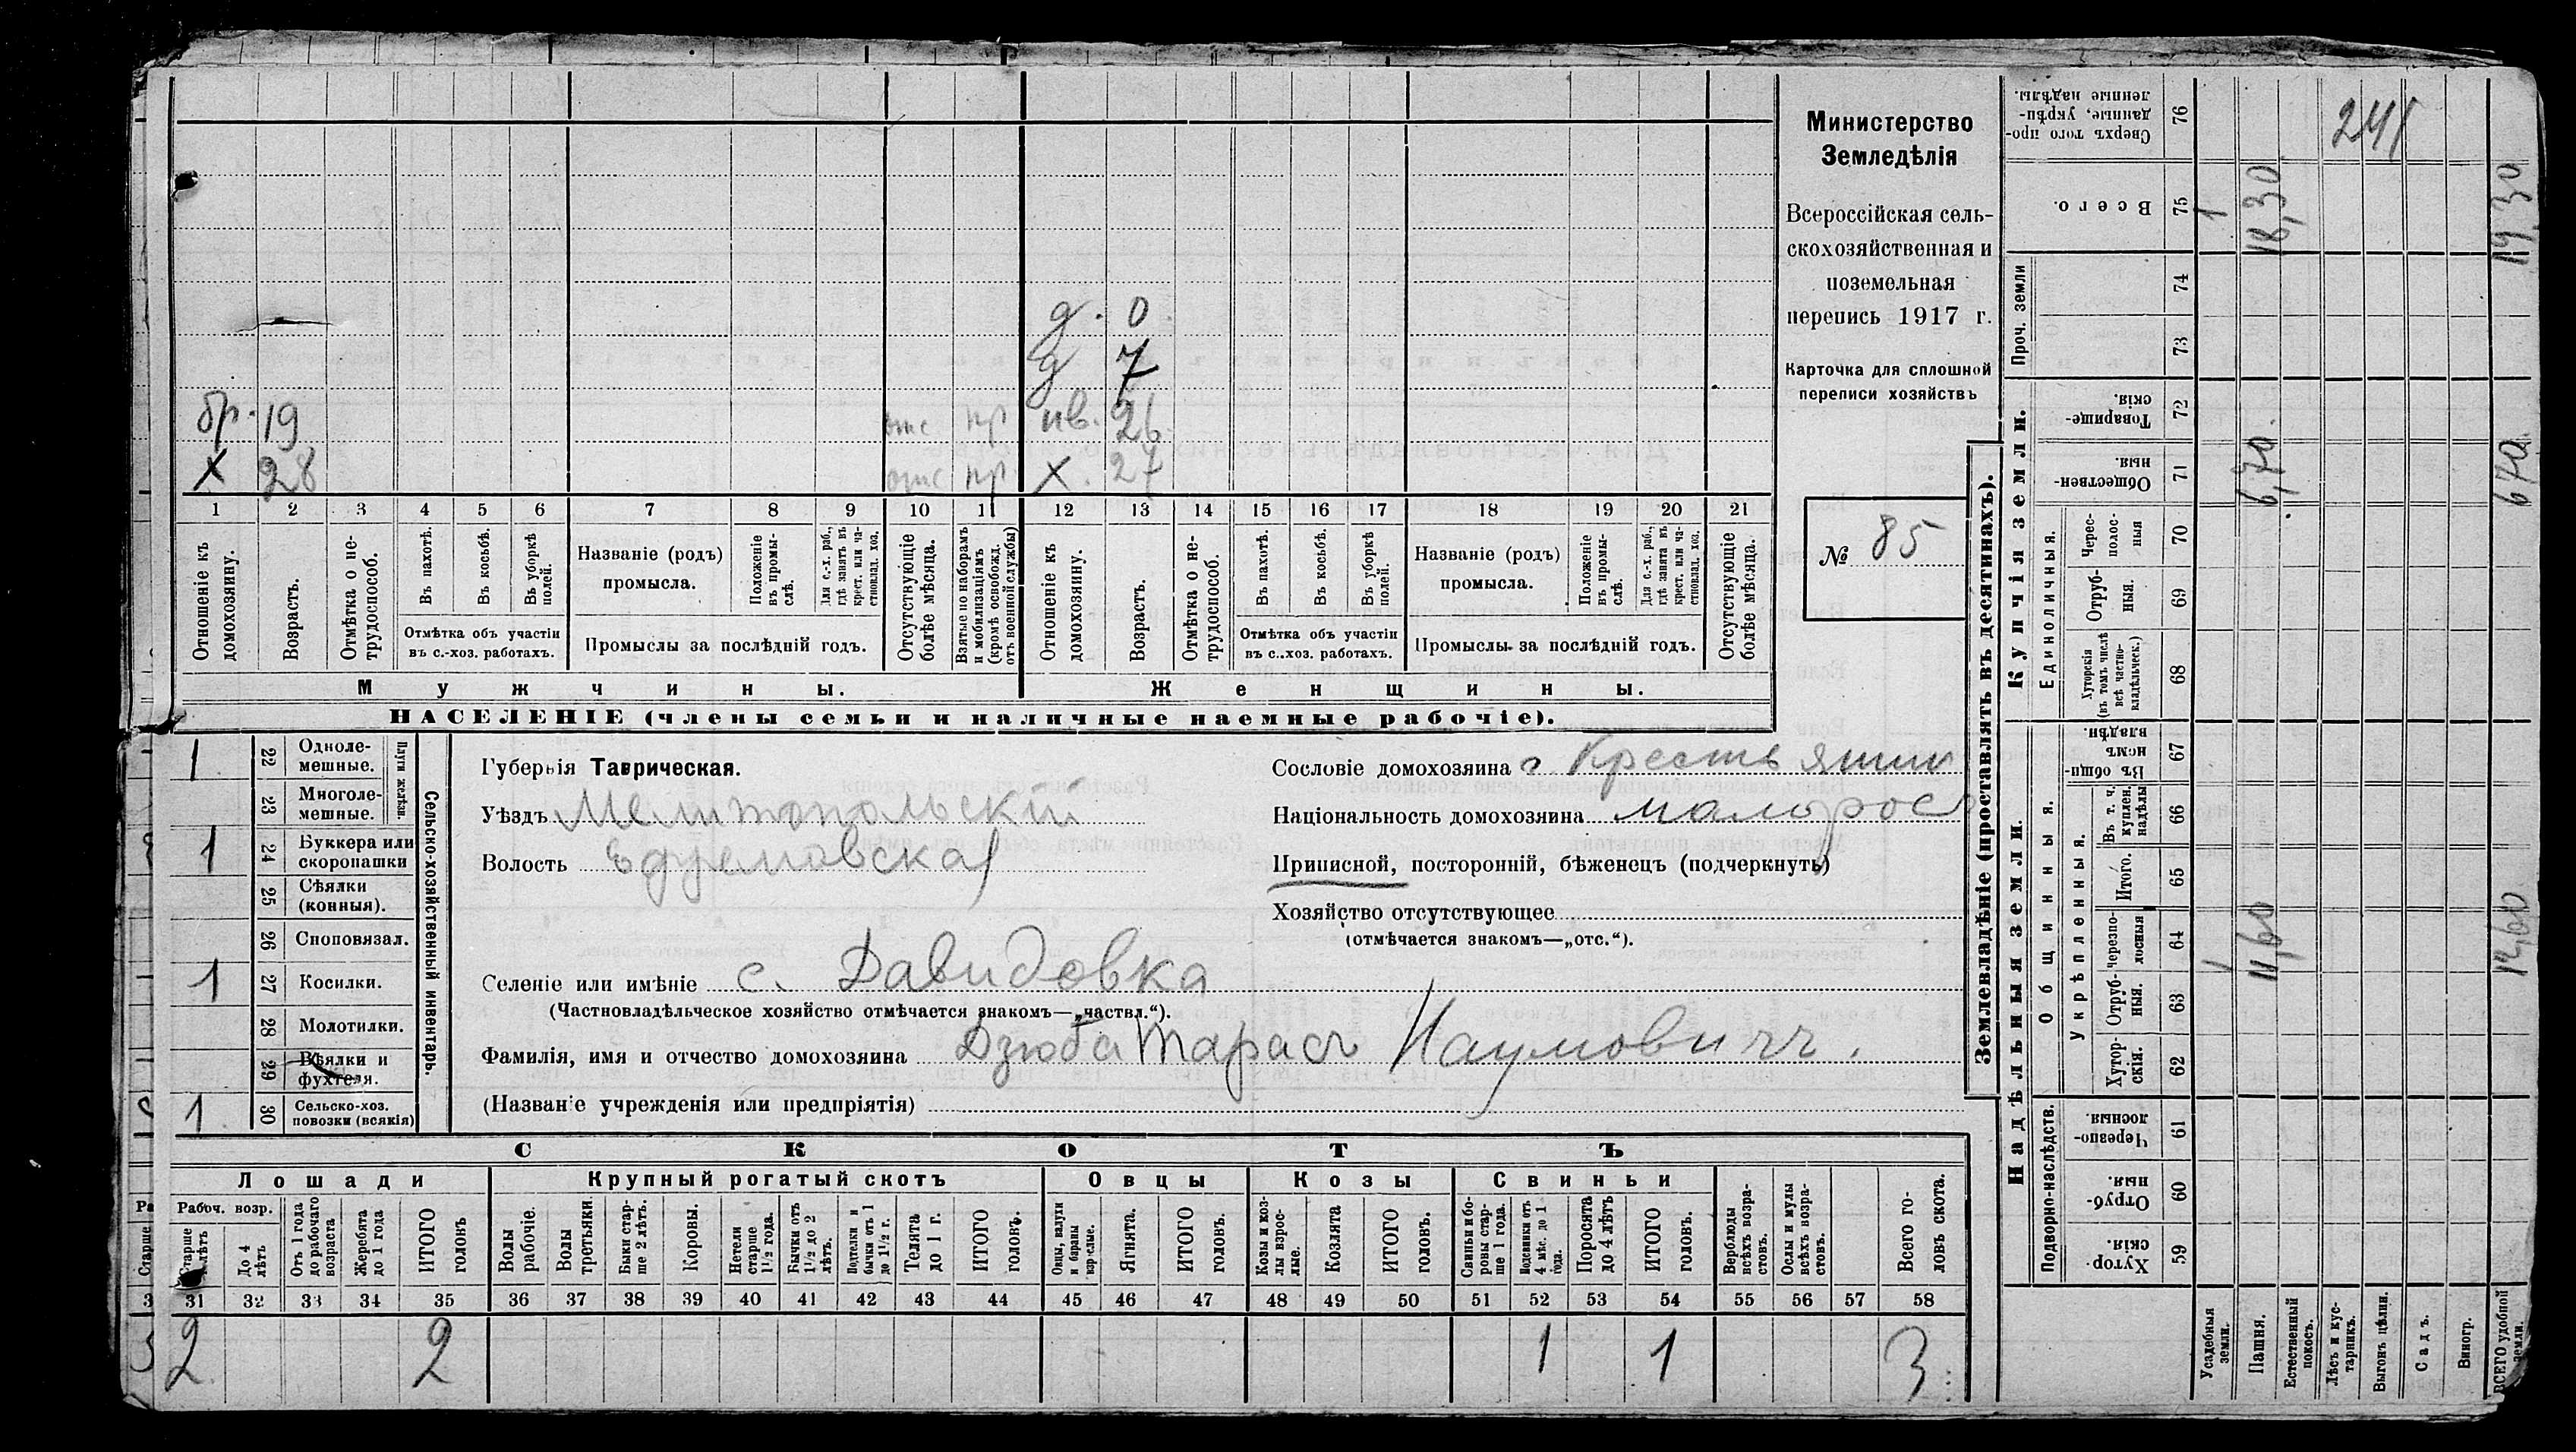 Министерство
Земледѣлія
Всероссійская сель-
скохозяйственная и
поземельная
перепись 1917 г.
Карточка для сплошной
переписи хозяйствъ
№ 85
д. 0
д 7
бр. 19 отс пр нв. 26
х 28 отс пр х. 27
1 2 3 4 5 6 7 8 9 10 11 12 13 14 15 16 17 18 19 20 21
Отношеніе къ домохозяину.
Возрастъ.
Отмѣтка о не-трудоспособ.
Въ пахотѣ.
Въ косьбѣ.
Въ уборкѣ полей.
Отмѣтка объ участіи
въ с.-хоз. работахъ.
Названіе (родъ)
промысла.
Положеніе въ промы-слѣ.
Для с.-х. раб., гдѣ занятъ въ крест. или ча-стновлад. хоз.
Промыслы за послѣдній годъ.
Отсутствующіе болѣе мѣсяца.
Взятые по наборамъ и мобилизаціямъ (кромѣ освобожд. отъ военной службы)
Отношеніе къ домохозяину.
Возрастъ.
Отмѣтка о не-трудоспособ.
Въ пахотѣ.
Въ косьбѣ.
Въ уборкѣ полей.
Отмѣтка объ участіи
въ с..хоз. работахъ.
Названіе (родъ)
промысла.
Положеніе въ промы-слѣ.
Для с.-х. раб., гдѣ занята въ крест. или ча-стновлад. хоз.
Промыслы за послѣдній годъ.
Отсутствующіе болѣе мѣсяца.
Мужчины. Женщины.
НАСЕЛЕНІЕ (члены семьи и наличные наемные рабочіе).
1 22 Одноле-мешные.
23 Многоле-мешные.
Плуги желѣзн.
1 24 Буккера или скоропашки
25 Сѣялки (конныя).
26 Сноповязал.
1 27 Косилки.
28 Молотилки.
29 Вѣялки и фухтеля.
1 30 Сельско-хоз. повозки (всякія)
Сельско-хозяйственный инвентарь.
Губернія Таврическая.
Уѣздъ Мелитопольскій
Волость Ефремовская
Селеніе или имѣніе с. Давидовка
(Частновладѣльческое хозяйство отмѣчается знакомъ—„частвл.“).
Фамилія, имя и отчество домохозяина Дзюба Тарасъ Наумовичъ.
(Названіе учрежденія или предпріятія)
Сословіе домохозяина Крестьянин
Національность домохозяина малорос
Приписной, посторонній, бѣженецъ (подчеркнуть)
Хозяйство отсутствующее
(отмѣчается знакомъ—„отс.“).
СКОТЪ
Лошади Крупный рогатый скотъ Овцы Козы Свиньи
Рабоч. возр.
Старше лѣтъ
До 4 лѣтъ
Отъ 1 года до рабочаго возраста
Жеребята до 1 года
ИТОГО головъ
Волы рабочіе.
Волы третьяки.
Быки стар-ше 2 лѣтъ.
Коровы.
Нетели старше 1½ года.
Бычки отъ 1½ до 2 лѣтъ.
Подтелки и бычки отъ 1 до 1½ г.
Телята до 1 г.
ИТОГО головъ.
Овцы, валухи и бараны взрослые.
Ягнята.
ИТОГО головъ.
Козы и коз-лы взрос-лые.
Козлята
ИТОГО головъ.
Свиньи и бо-ровы стар-ше 1 года.
Подсвинки отъ 4 мѣс. до 1 года.
Поросята до 4 лѣтъ
ИТОГО головъ.
Верблюды всѣхъ возра-стовъ.
Ослы и мулы всѣхъ возра-стовъ.
Всего го-ловъ скота.
31 32 33 34 35 36 37 38 39 40 41 42 43 44 45 46 47 48 49 50 51 52 53 54 55 56 57 58
2 2 1 1 3
Землевладѣніе (проставлять въ десятинахъ).
Купчія земли.
Надѣльныя земли.
Сверхъ того про-данные, укрѣп-ленные надѣлы. 76 241
Всего. 75 1 18,30 19,30
Проч. земли 74 73
Товарище-скія. 72
Обществен-ныя. 71 6,70. 670
Единоличныя.
Черес-полос-ныя 70
Отруб-ныя. 69
Хуторскія (въ томъ числѣ всѣ частно-владѣльческ.) 68
Общинныя.
Въ общи-номъ владѣн. 67
Укрѣпленныя.
Въ т. ч. куплен. надѣлы 66
Итого. 65
Черезпо-лосныя 64 1 11,60
Отруб-ныя. 63
Хутор-скія. 62
Подворно-наслѣдств.
Черезпо-лосныя 61
Отруб-ныя. 60
Хутор-скія. 59
Усадебныя земли.
Пашня.
Естественный покосъ.
Лѣсъ и кус-тарникъ.
Выгонъ цѣлин.
Садъ.
Виногр.
ВСЕГО удобной земли.